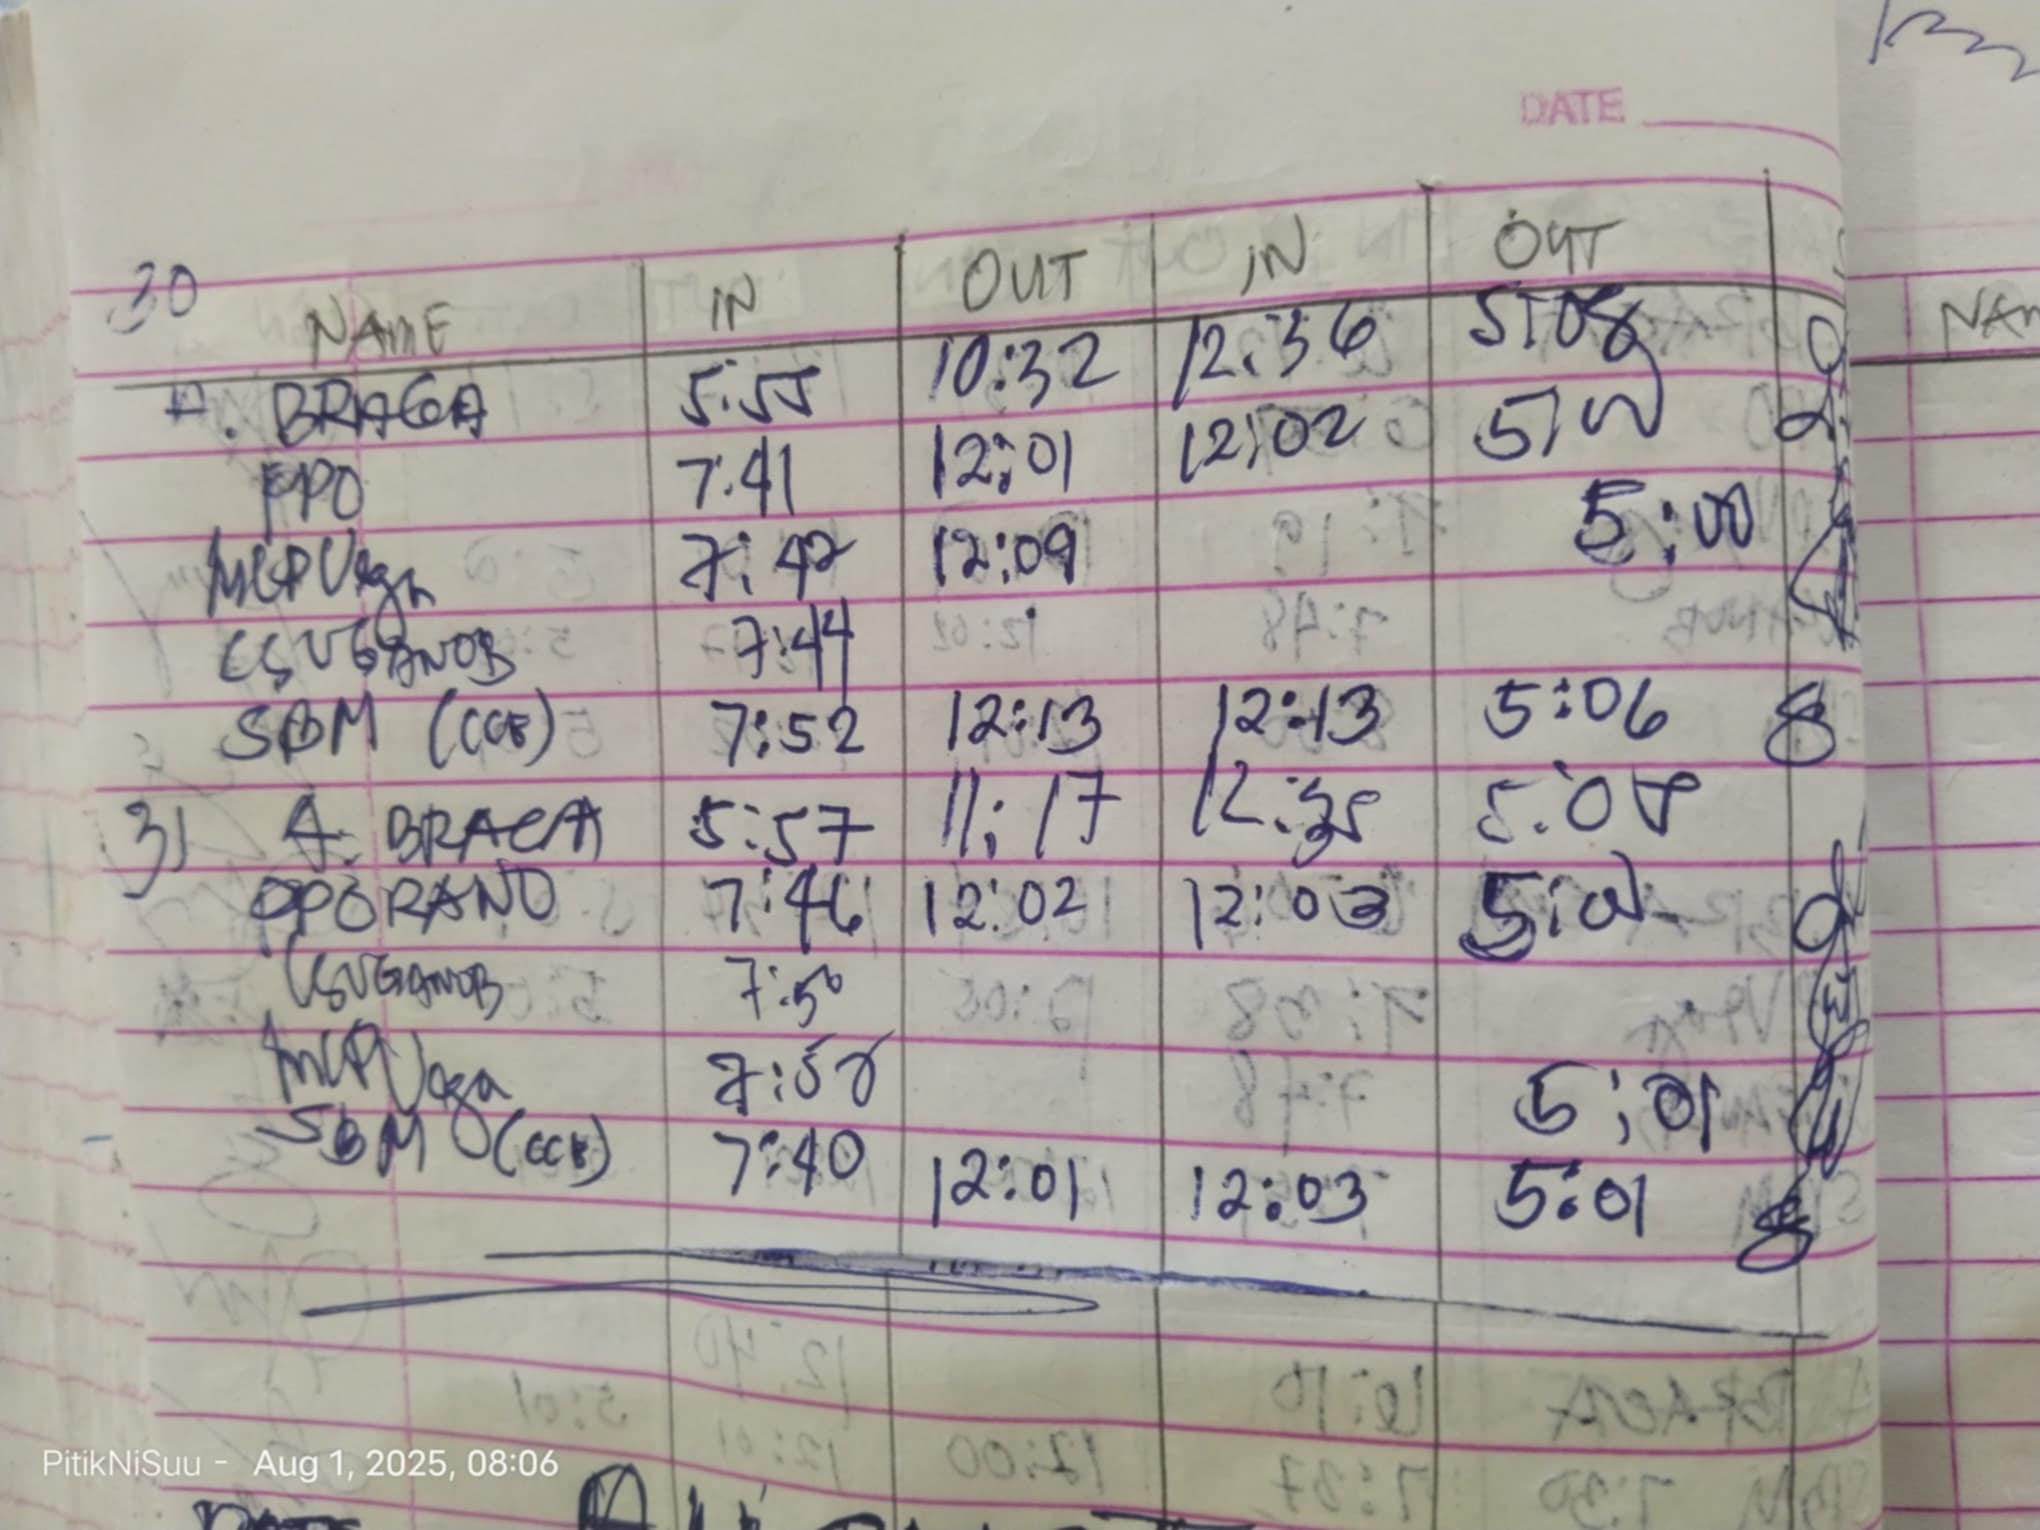 DATE
30
NAME IN OUT IN OUT
A. BRAGA 5:55 10:32 12:36 5:08
PPO 7:41 12:01 12:02 5:00
MCPVega 7:42 12:09 5:00
CSVGANOB 7:44
SBM (CCE) 7:52 12:13 12:13 5:06
31 A. BRAGA 5:57 11:17 12:35 5:08
PPORANO 7:46 12:02 12:03
CSVGANOB 7:50
MCPVega 5:01
SBM (CCE) 7:40 12:01 12:03 5:01
PitikNiSuu - Aug 1, 2025, 08:06